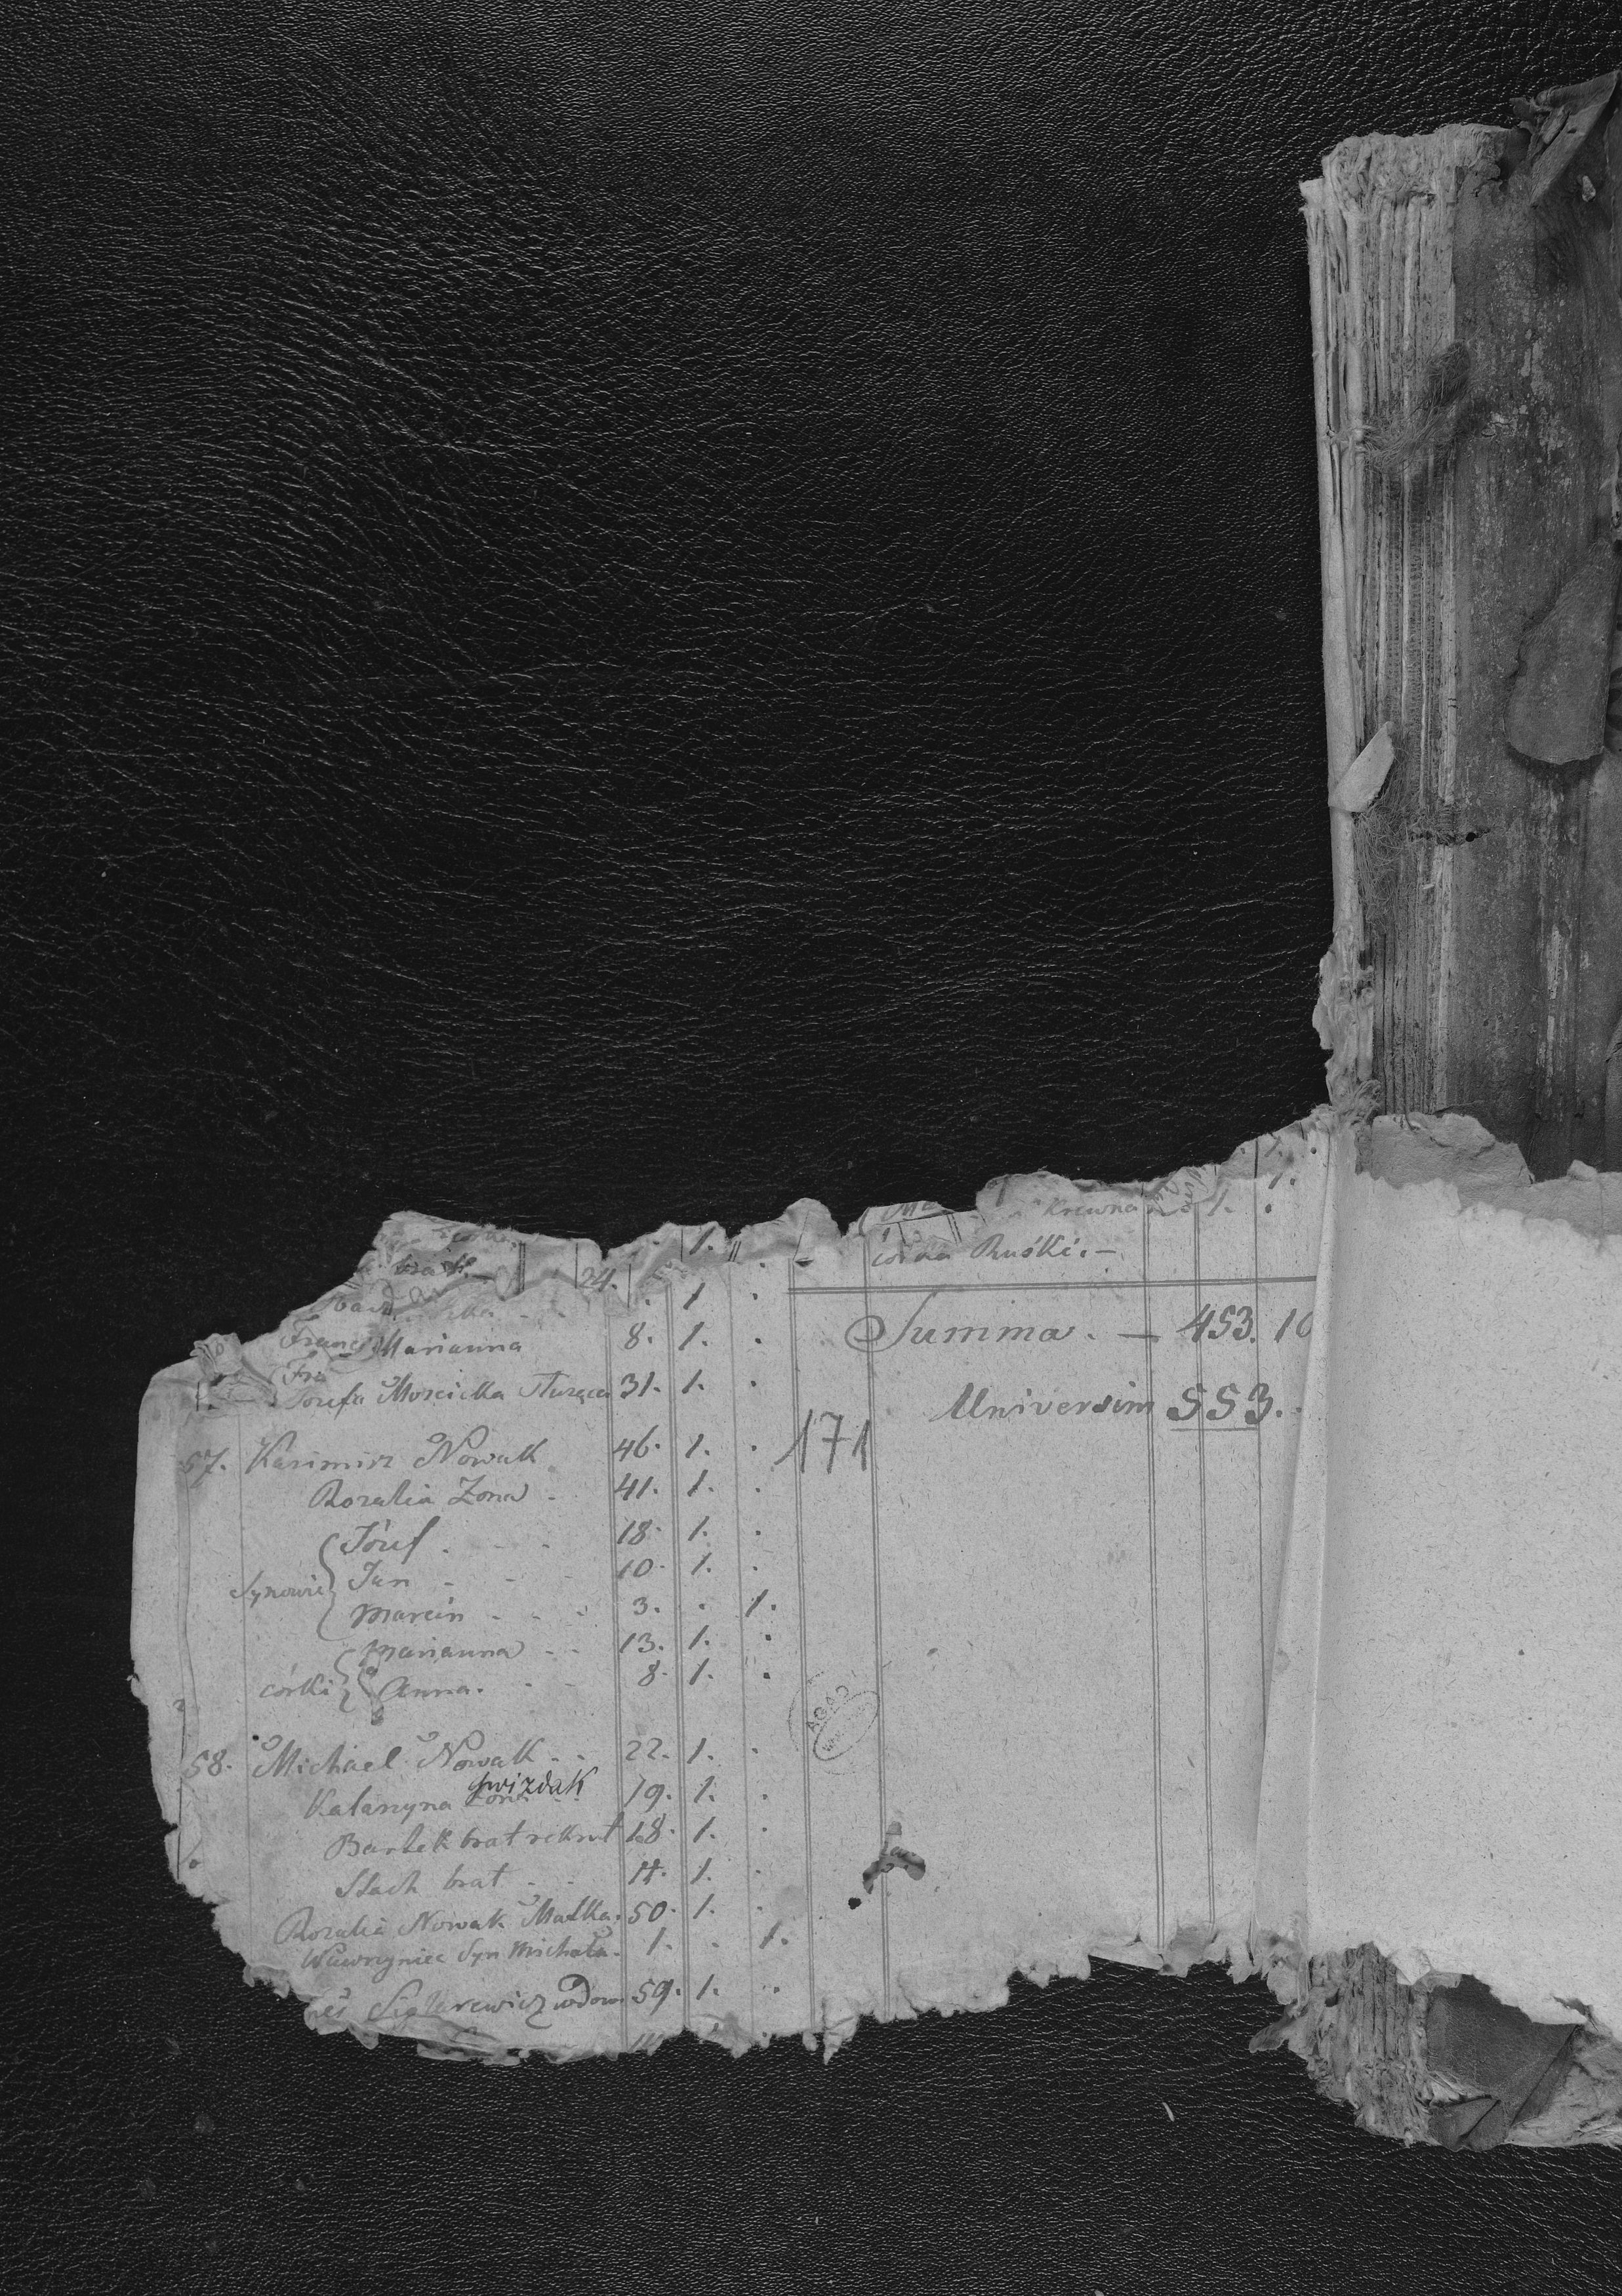 1.
24.
1
Marianna 8. 1. .
Józefa Moscicka służąca 31. 1. .
57. Kazimirz Nowak 46. 1. .
Rozalia Zona 41. 1. .
Synowie
Józef 18. 1. .
Jan 10. 1. .
Marcin 3. . 1.
córki
Marianna 13. 1. .
Anna. 8. 1. .
58. Michael Nowak 22. 1. .
Gwizdak
Katarzyna Zona 19. 1. .
Bartek brat rekrut 18. 1. .
Stach brat 1. .
Rozalia Nowak Matka. 50. 1. .
Wawrzyniec Syn Michała. 1. . 1.
wdowa 59. 1. .
Krewna 1. .
córka Ruśki. —
Summa. — 453. 10
Universim 553.
171
AGAD